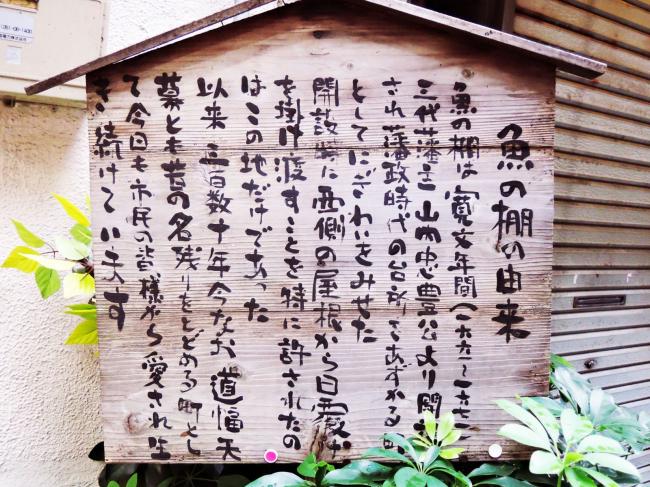 魚の棚の由来
魚の棚は寛文年間(一六六一～一六七二)
三代藩主 山内忠豊公より開設
され藩政時代の台所であずかる町
としてにぎわいをみせた
開設時に両側の屋根から日覆
を掛け渡すことを特に許されたの
はこの地だけであった
以来 三百数十年今なお 道幅天
幕とも昔の名残りをとどめる町とし
て今日も市民の皆様から愛され生
き続けています